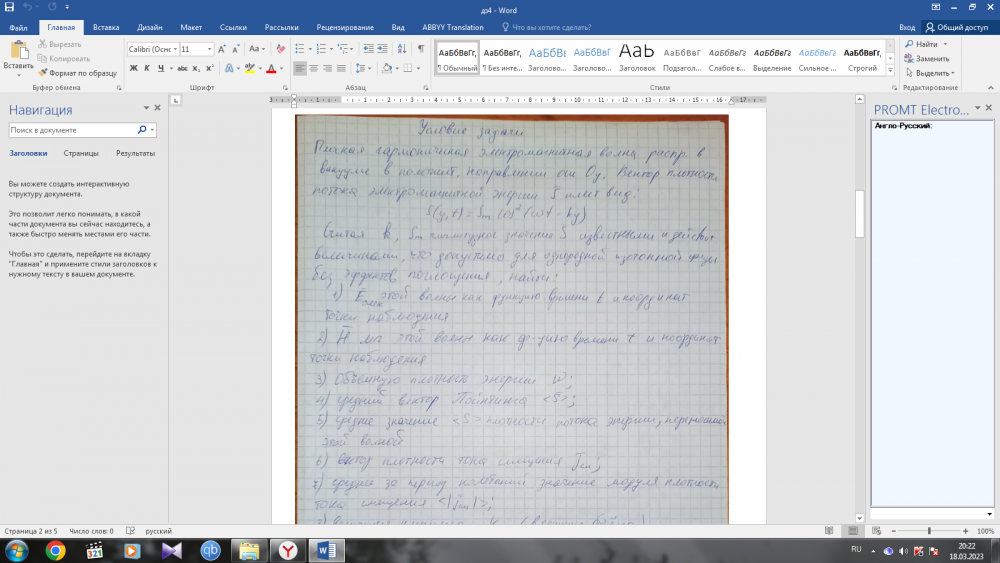 дз4 - Word
Файл
Главная
Вставка
Дизайн
Макет
Ссылки
Рассылки
Рецензирование
Вид
ABBYY Translation
Что вы хотите сделать?
Вход
Общий доступ
Вставить
Вырезать
Копировать
Формат по образцу
Буфер обмена
Calibri (Оснс
11
Шрифт
Абзац
АаБбВвГг,
¶ Обычный
АаБбВвГг,
¶ Без инте...
АаБбВі
Заголово...
АаБбВвГ
Заголово...
АаБ
Заголовок
АаБбВвГ
Подзагол...
АаБбВвГг
Слабое в...
АаБбВвГг
Выделение
АаБбВвГг
Сильное ...
АаБбВвГг,
Строгий
Стили
Найти
Заменить
Выделить
Редактирование
Навигация
Поиск в документе
Заголовки
Страницы
Результаты
Вы можете создать интерактивную
структуру документа.
Это позволит легко понимать, в какой
части документа вы сейчас находитесь, а
также быстро менять местами его части.
Чтобы это сделать, перейдите на вкладку
"Главная" и примените стили заголовков к
нужному тексту в вашем документе.
Условие задачи
Плоская гармоничная электромагнитная волна распр. в
вакууме в положит. направлении оси Oy. Вектор плотности
потока электромагнитной энергии S имеет вид:
S(y,t) = Sm cos²(ωt - ky)
Считая k, Sm амплитудное значение S известными и действ
величинами, что допустимо для однородной изотопной среды
без эффектов поглощения, найти:
1) E этой волны как функцию времени t и координат
точки наблюдения
2) H этой волны как ф-цию времени t и координат
точки наблюдения
3) Объёмную плотность энергии w;
4) средний вектор Пойнтинга <S>;
5) среднее значение <S> плотности потока энергии, переносимой
этой волной
6) вектор плотности тока смещения jсм;
7) среднее за период колебаний значение модуля плотности
тока смещения <|jсм|>;
PROMT Electro...
Англо-Русский:
Страница 2 из 5
Число слов: 0
русский
100%
RU
20:22
18.03.2023